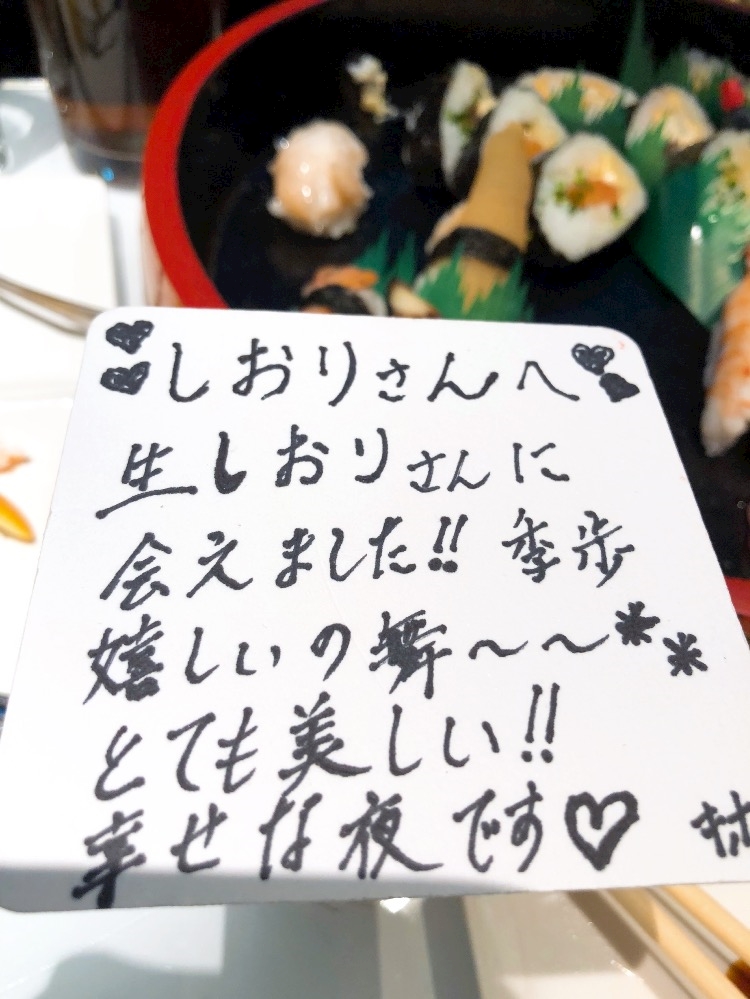 しおりさんへ
生しおりさんに
会えました!! 季歩
嬉しいの舞〜〜**
とても美しい!!
幸せな夜です♡